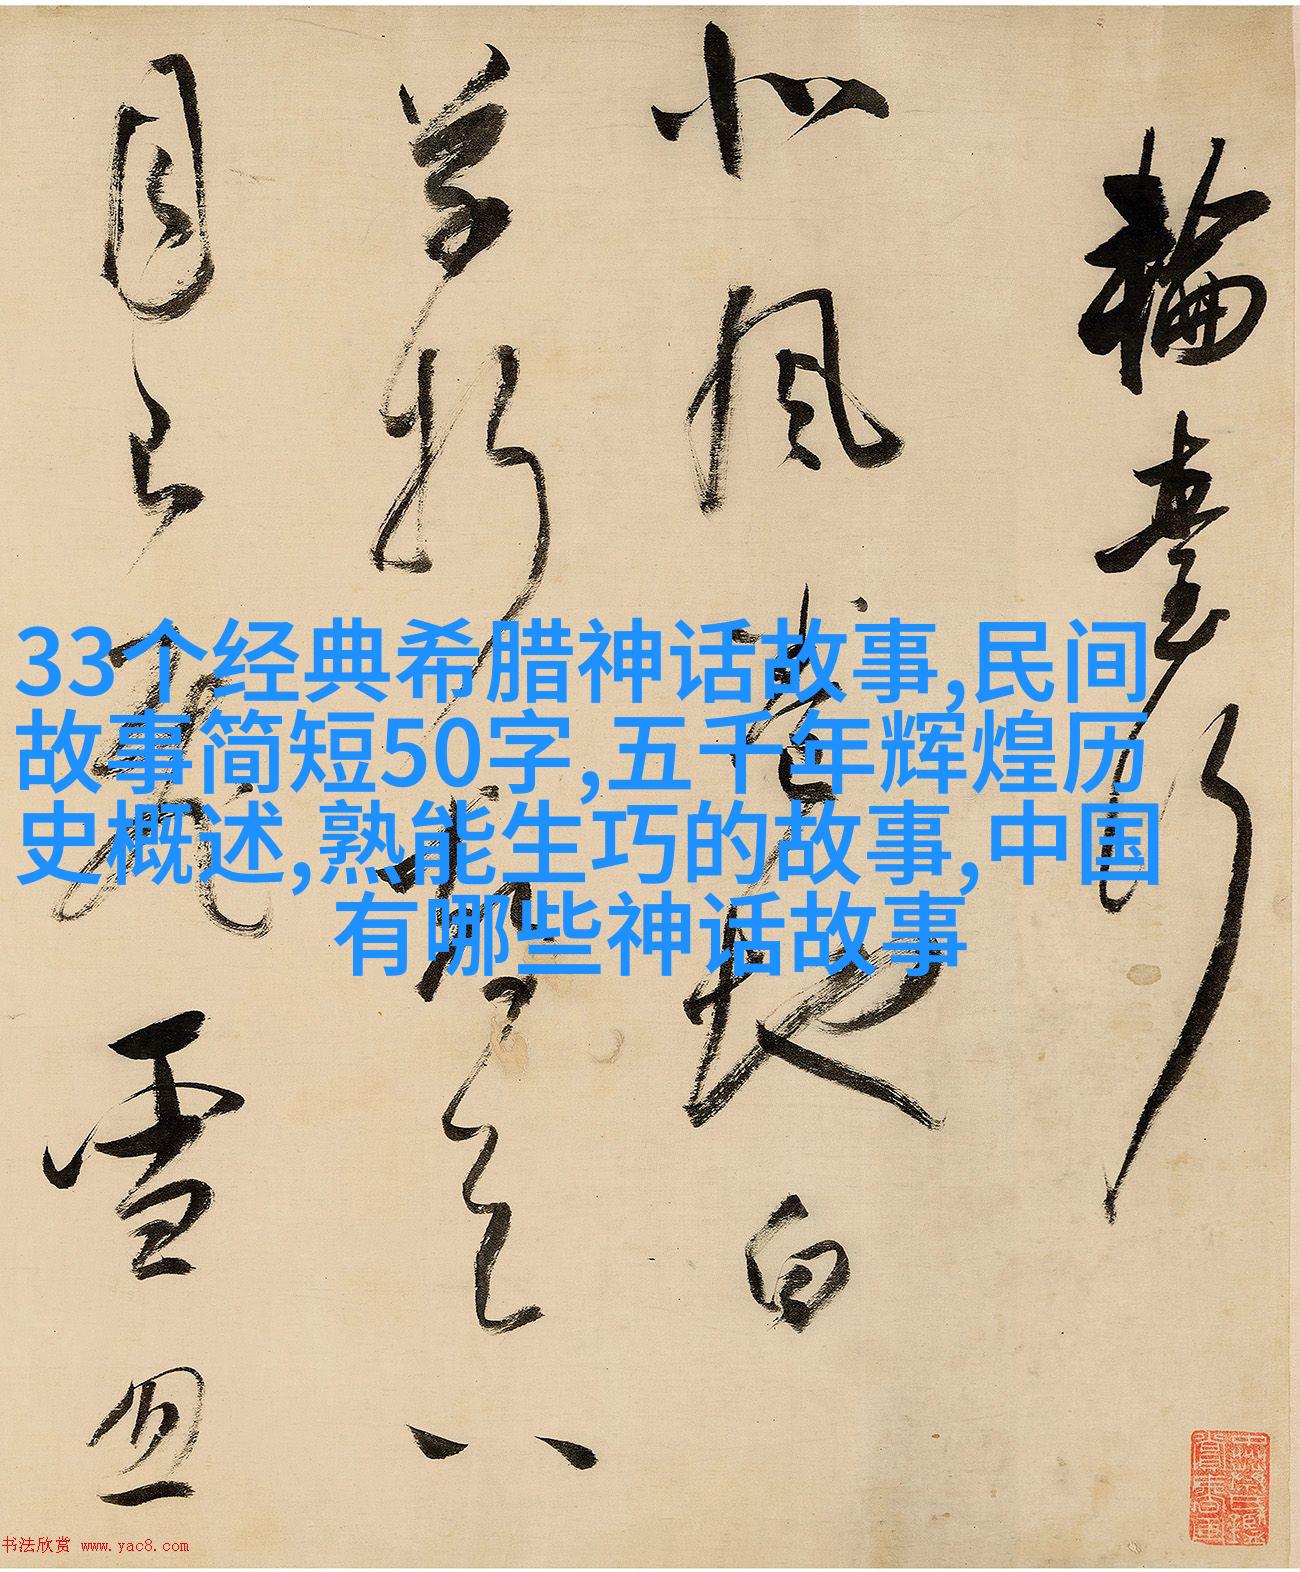 輪臺行
北風卷地白
草折胡天八
月即飛雪
33个经典希腊神话故事,民间
故事简短50字,五千年辉煌历
史概述,熟能生巧的故事,中国
有哪些神话故事
书法欣赏 www.yac8.com